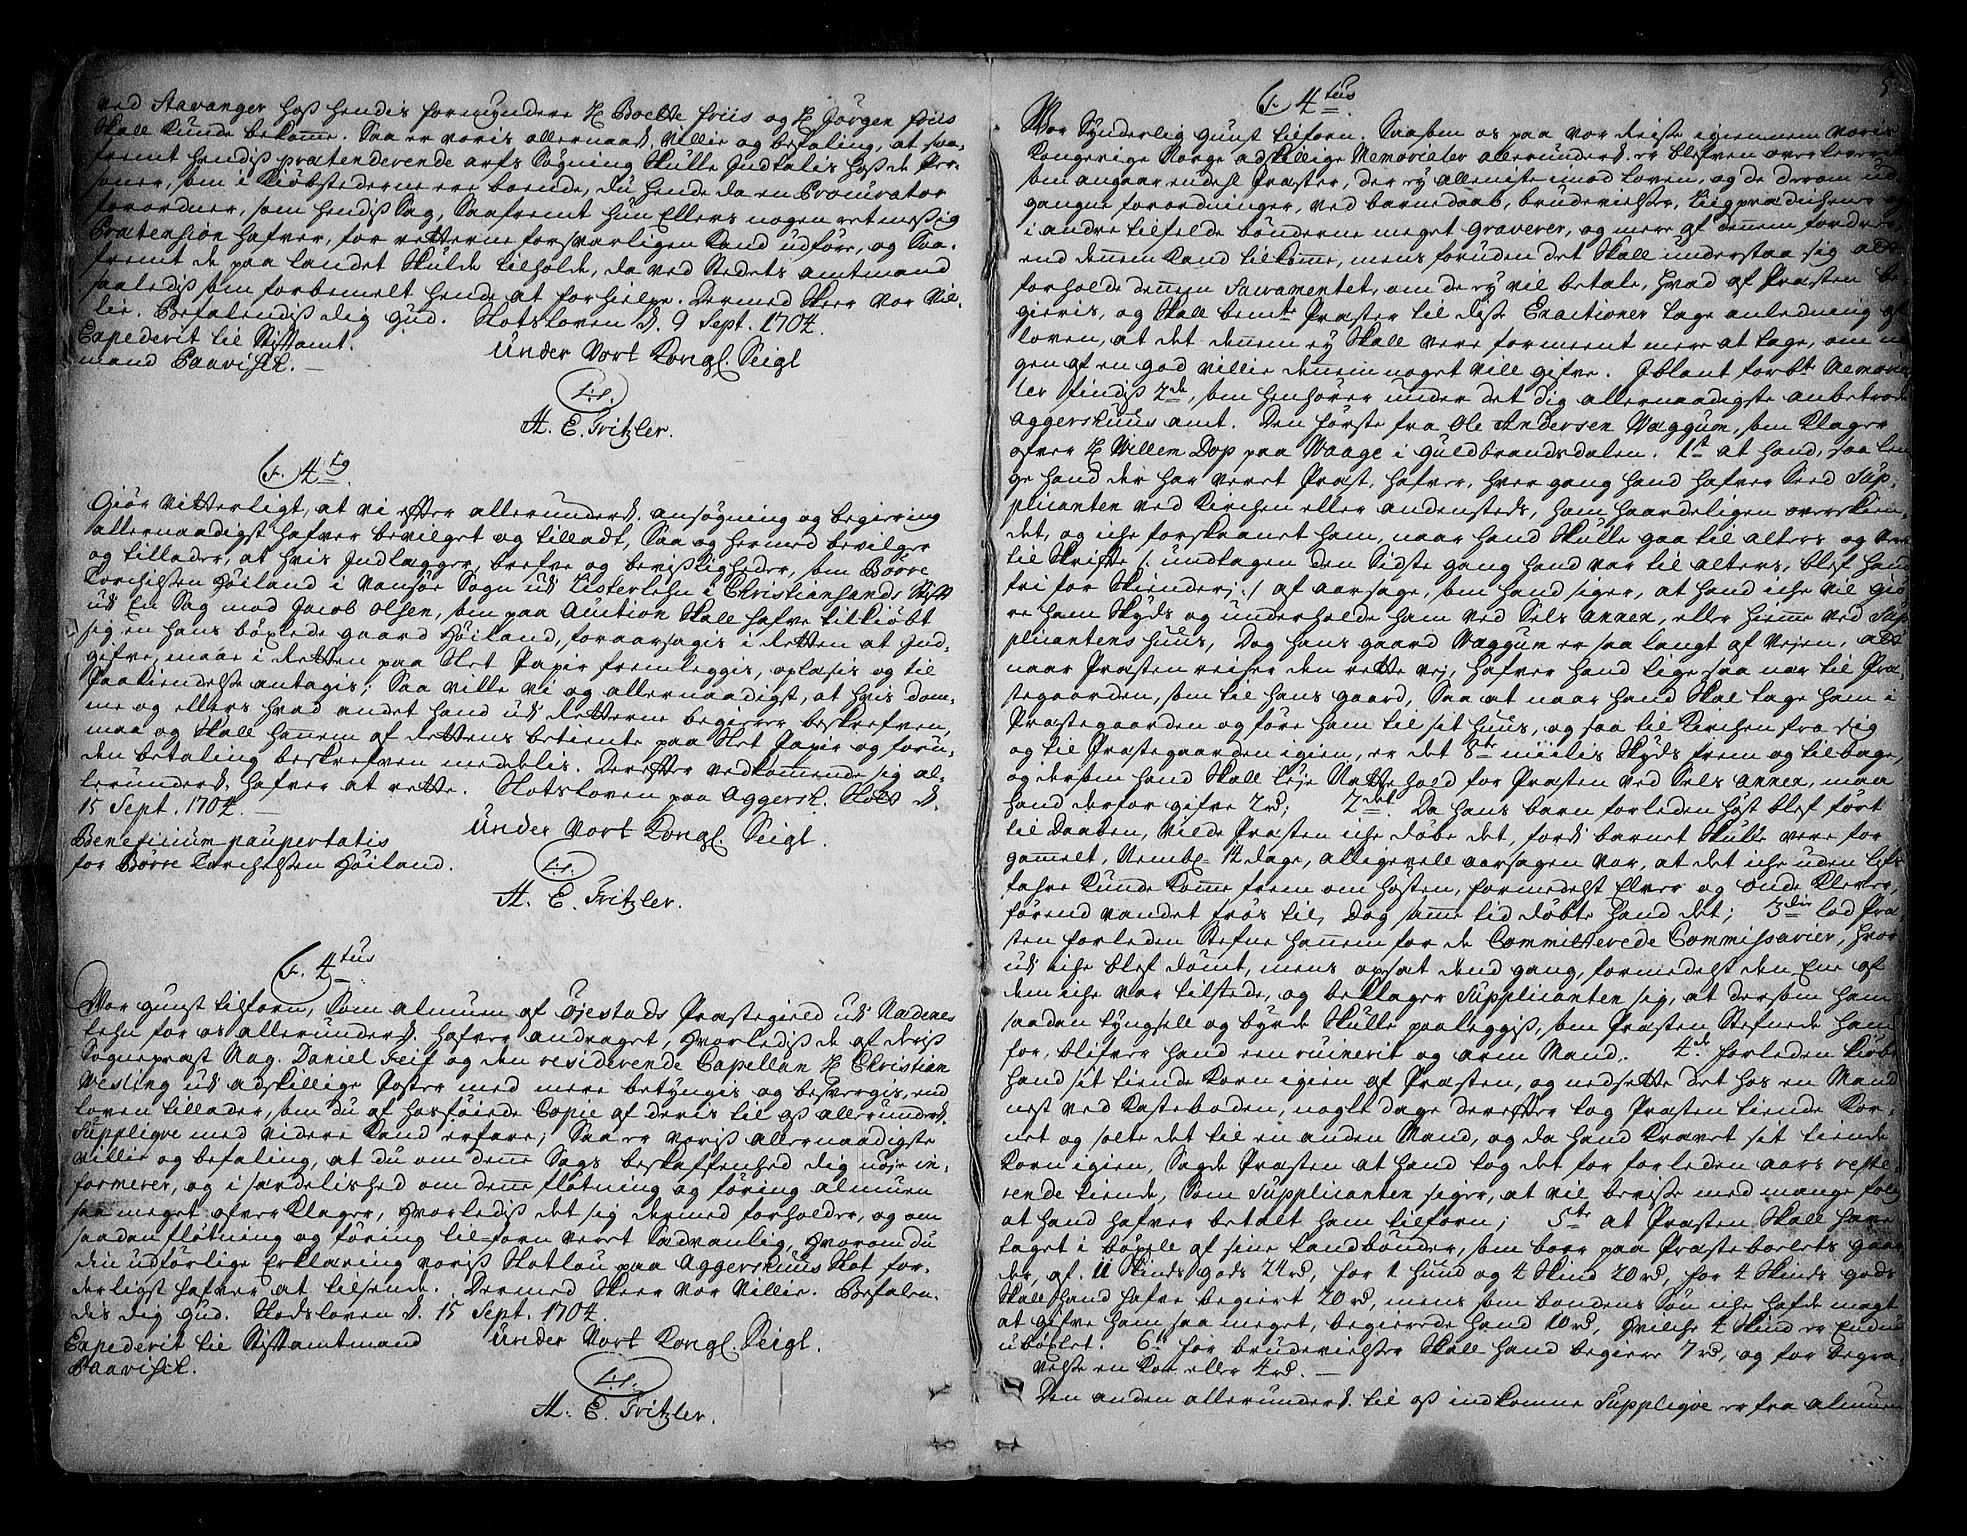 ved Stavanger hoss hendis formyndere H Boelte friis og H Jørgen friis
Skall Kunde bekome. Saa er voris allernaad. Villie og befaling, at saa-
fremt hendiss prætenderende arfs Søgning Skulle Indtalis hoss de Per-
soner, som i Kiøbstederne ere boende, du hende da en Procurator
forordner, som hendis Sag, Saafremt hun Ellers nogen retmessig
Prætension hafver, for retterne forsvarligen Kand udføre, og Saa-
fremt de paa landet Skulde tilholde, da ved Stedets amtmand
saaledis som forbemelt hende at forhielpe. Dermed Skeer Vor Vil-
lie. Befalendis dig Gud. Slotsloven d. 9 Sept. 1704.
Expederit til Stiftamt-
mand Paavisch. —
Under Vort Kongl. Seigl
L.S.
A. E. Fritzler.
Fr. 4tg
Giør Vitterligt, at vi efter allerunderd. ansøgning og begiering
allernaadigst hafver bevilget og tilladt, Saa og hermed bevilger
og tillader, at hvis Indlægger, brefve og bevisligheder, som Børre
Torchelsen Høiland i Vansøe Sogn ud Listerlehn i Christiansands Stift
ud En Sag mod Jacob Olsen, som paa Auction Skall hafve tilkiøbt
sig en hans bøxlede gaard Høiland, foraarsagis i Retten at Ind-
gifve, maae i Retten paa Slet Papir fremleggis, oplæsis og til
Paakiendelse antagis; Saa ville vi og allernaadigst, at hvis dom-
me og ellers hvad andet hand ud Retterne begierer beskrefven,
maa og Skall hannem af Rettens betiente paa Slet Papir og foru-
den betaling beskrefven meddelis. Derefter vedkommende sig al-
lerunderd. hafver at rette. Slotsloven paa Aggersh. Slott d.
15 Sept. 1704. —
Beneficium paupertatis
for Børre Torchelsen Høiland.
Under Vort Kongl. Seigl.
L.S.
A. E. Fritzler.
Fr. 4tus
Vor gunst tilforn, Som almuen af Øjestads Præstegield ud Nedenes
lehn for os allerunderd. hafver andraget, hvorledis de af deris
Sognepræst Mag. Daniel Feif og den residerende Capellan H Christian
Wesling ud adskillige Poster med mere betyngis og besvergis, end
loven tillader, som du af hosføiede Copie af deris til oss allerunderd.
Suppliqve med videre Kand erfare; Saa er Voris allernaadigste
villie og befaling, at du om dene Sags beskaffenhed dig nøje in-
formerer, og i særdelished om dene fløtning og føring almuen
saa meget ofver Klager, hvorledis det sig dermed forholder, og om
saadan fløtning og føring til-forn veret Sædvanlig, hvorom du
din udførlige Erklæring voris Slotlou paa Aggershuus Slot for-
derligst hafver at tilsende. Dermed Skeer Vor Villie. Befalen-
des dig Gud. Slodsloven d. 15 Sept. 1704.
Expederit til Stiftamtmand
Paavisch.
Under Vort Kongl. Seigl.
L.S.
A. E. Fritzler.
5
Fr. 4tus
Vor Synderlig Gunst tilforn. Saasom os paa vor Reise igiennem Voris
Kongerige Norge adskillige Memorialer allerunderd. er blefven overleverede
som angaar endeel Præster, der ey alleniste imod loven, og de derom ud-
gangne forordninger, ved barnedaab, brudevielser, liigprædichener og
i andre tilfelde bønderne meget graverer, og mere af dennem fordrer
end dennem Kand tilkome, mens foruden det Skall understaa sig at
forholde dennem Sacramentet, om de ey vil betale, hvad af Præsten be-
gieris, og Skall bemte Præster til disse Exactioner tage anledning af
loven, at det dennem ey Skall vere formeent mere at tage, om no-
gen af en god villie dennem noget vill gifve. Iblant forbte Memoria-
ler findis 2de, som henhører under det dig allernaadigste anbetroede
Aggershuus amt. Den første fra Ole Andersen Vaggum, som Klager
ofver H Villem Dop paa Vaage i Guldbrandsdalen. 1t at hand, saa len-
ge hand der har veret Præst, hafver, hver gang hand hafver Seed Sup-
plicanten ved Kirchen eller andensteds, ham haardeligen overskien-
det, og iche forskaanet ham, naar hand Skulle gaa til alters og
til Skrifte /: undtagen den Sidste gang hand var til alters, blef hand
fri for Skienderj :/ af aarsage, som hand siger, at hand iche vil giø-
re ham Skyds og underholde ham ved Sels Annex, eller hieme ved Sup-
plicantens huus, Dog hans gaard Vaggum er saa langt af Vejen, at
naar Præsten reiser den rette vej, hafver hand lige saa nær til Præ-
stegaarden, som til hans gaard, Saa at naar hand Skal tage ham i
Præstegaarden og føre ham til sit huus, og saa til Kirchen fra Sig
og til Præstegaarden igien, er det 8te miilis Skyds frem og tilbage,
og dersom hand Skall leje Nattehold for Præsten ved Sels Annex, maa
hand derfor gifve 2 rd; 2det. Da hans barn forleden høst blef ført
til Daaben, vilde Præsten iche døbe det, ford barnet Skulle vere for
gammelt, Nembl. 12 dage, alligevell aarsagen var, at det iche uden lifs
fahre Kunde Kome frem om høsten, formedelst Elver og onde Klever,
førend vandet frøs til, Dog same tid døbte hand det; 3die lod Præ-
sten forleden Stefne hannem for de Committerede Commissarier, hvor
ud iche blef dømt, mens opsat dend gang, formedelst den Ene af
dem iche var tilstede, og beklager Supplicanten sig, at dersom ham
saadan tyngsell og byrde Skulle paaleggis, som Præsten Stefnede ham
for, blifver hand een ruinerit og arm Mand. 4de forleden kiøbte
hand sit tiende Korn igien af Præsten, og nedsette det hos en Mand
nest ved Kasteboden, nogle dage derefter tog Præsten tiende Kor-
net og solte det til en anden Mand, og da hand Kravet sit tiende
Korn igien, Sagde Præsten at hand tog det for forleden aars reste-
rende tiende, Som Supplicanten siger, at vil bevise med mange folch
at hand hafver betalt ham tilforn; 5te at Præsten Skall have
taget i bøxle af sine landbønder, som boer paa Præsteboelets gaar-
der, af 11 Skinds gods 24 rd, for 1 hund og 4 Skind 20 rd, for 4 Skinds gods
Skall hand hafve begiert 20 rd, mens som bondens Søn iche hafde magt
at gifve ham saa meget, begierede hand 10 rd, hvilche 4 Skind er Endnu
ubøxlet. 6te for brudevielser Skall hand begiere 7 rd, og for begra-
velse en Koe eller 4 rd. —
Den anden allerunderd. til oss indkomne Suppliqve er fra almuen